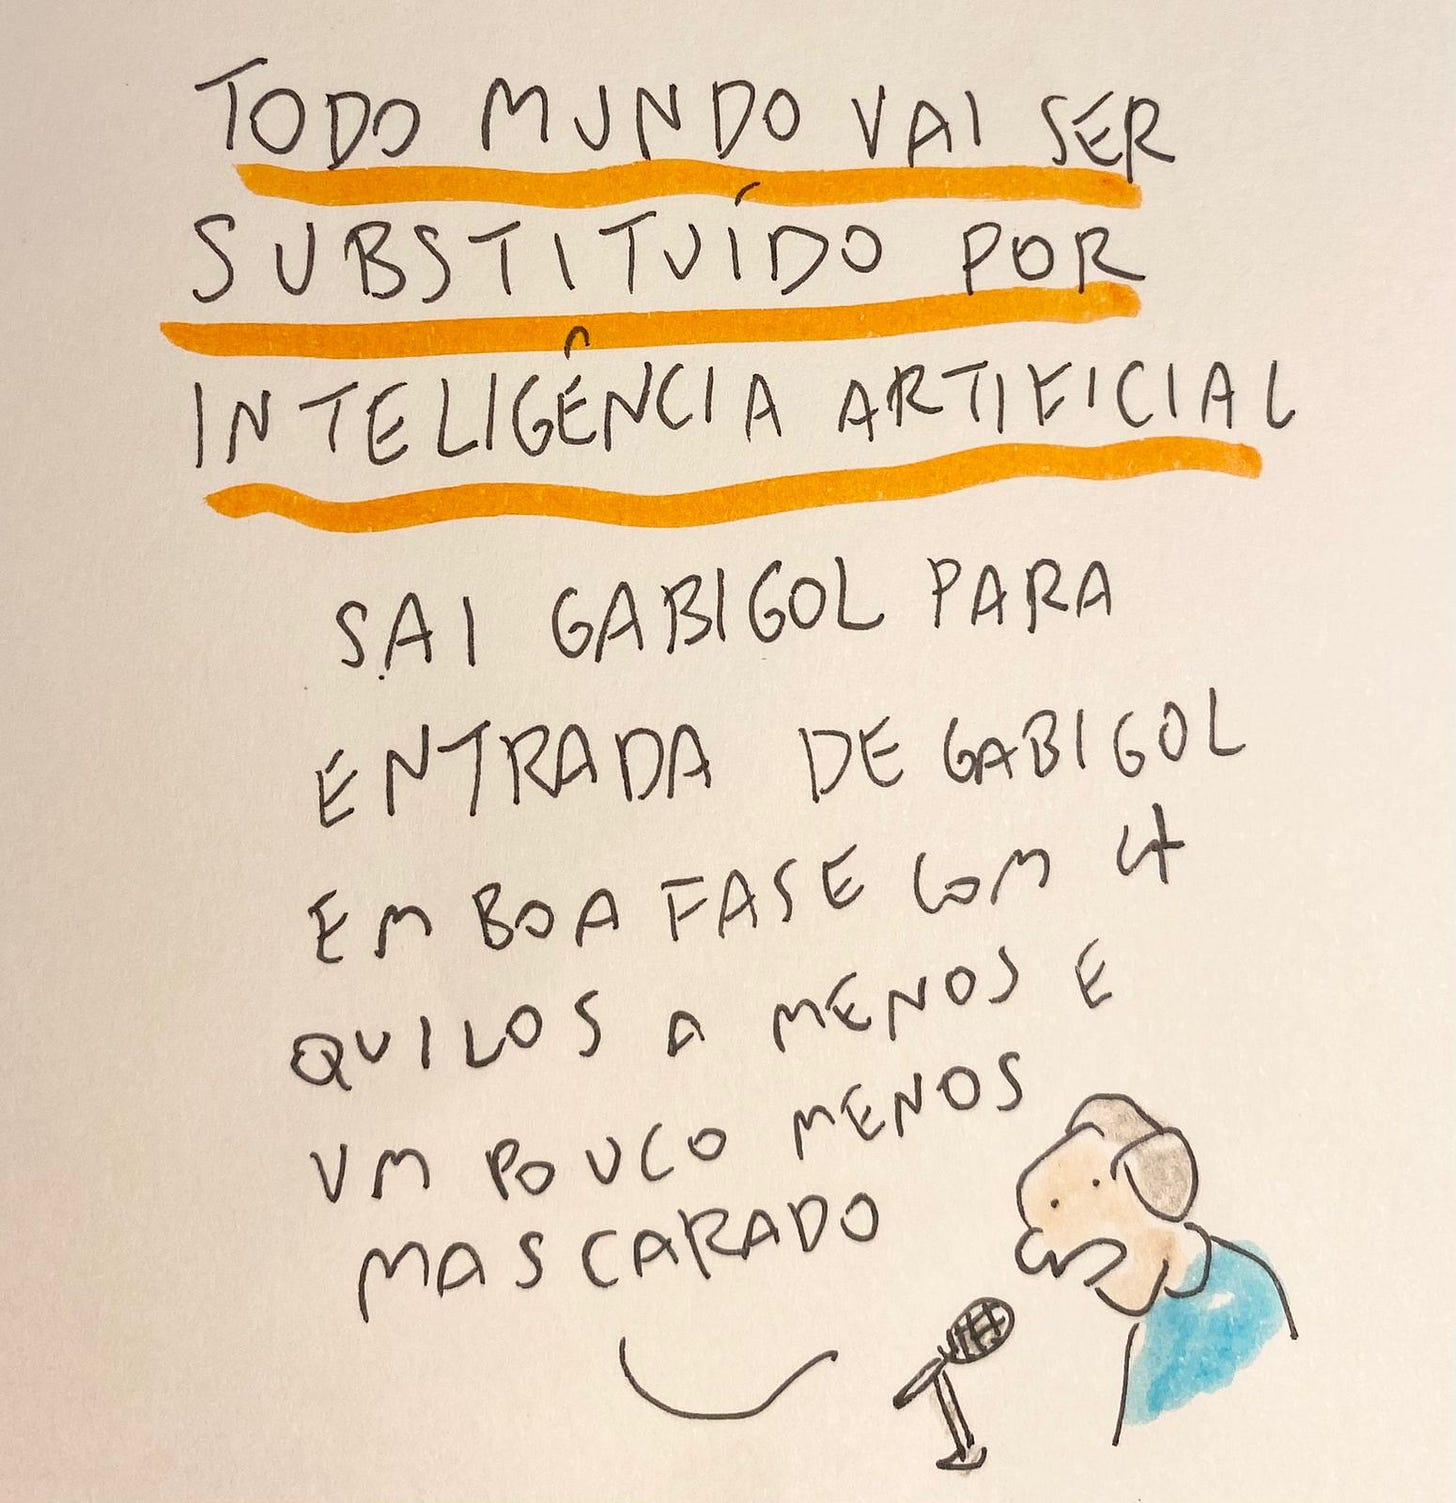 TODO MUNDO VAI SER
SUBSTITUÍDO POR
INTELIGÊNCIA ARTIFICIAL
SAI GABIGOL PARA
ENTRADA DE GABIGOL
EM BOA FASE COM 4
QUILOS A MENOS E
UM POUCO MENOS
MASCARADO